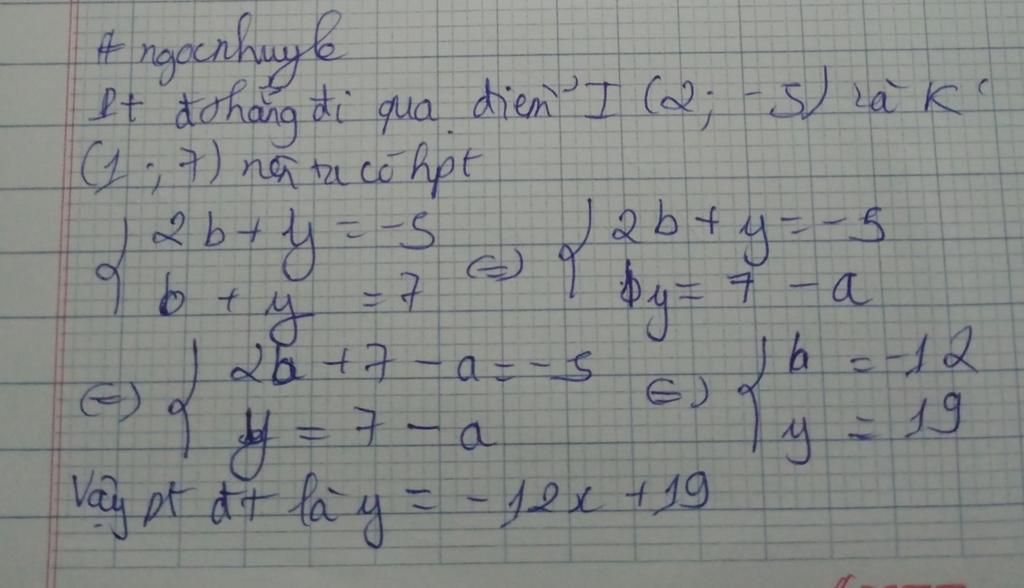 # ngocnhuy6
Pt đ thẳng đi qua điểm I (2; -5) và K
(1; 7) nên ta có hpt
{ 2b + y = -5 <=> { 2b + y = -5
{ b + y = 7 { y = 7 - a
<=> { 2a + 7 - a = -5 <=> { b = -12
{ y = 7 - a { y = 19
Vậy pt đt là y = -12x + 19